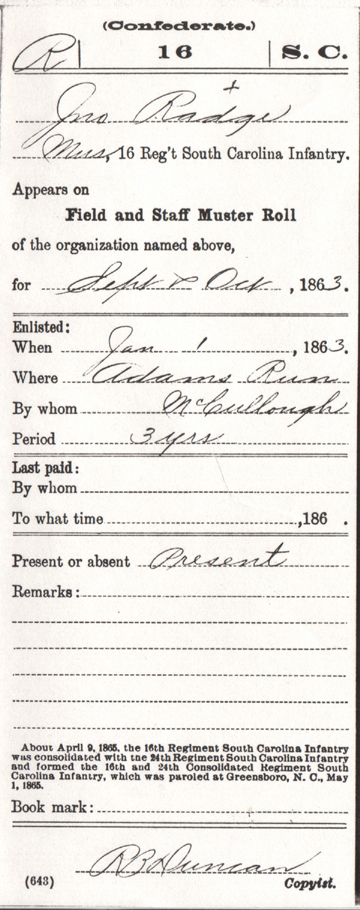 (Confederate.)
R | 16 | S. C.
+
Jno Radge
Mus, 16 Reg't South Carolina Infantry.
Appears on
Field and Staff Muster Roll
of the organization named above,
for Sept & Oct, 1863.
Enlisted:
When Jan 1, 1863.
Where Adams Run
By whom McCullough
Period 3 yrs
Last paid:
By whom
To what time ,186 .
Present or absent Present
Remarks:
About April 9, 1865, the 16th Regiment South Carolina Infantry
was consolidated with the 24th Regiment South Carolina Infantry
and formed the 16th and 24th Consolidated Regiment South
Carolina Infantry, which was paroled at Greensboro, N. C., May
1, 1865.
Book mark:
R B Duncan
(643) Copyist.